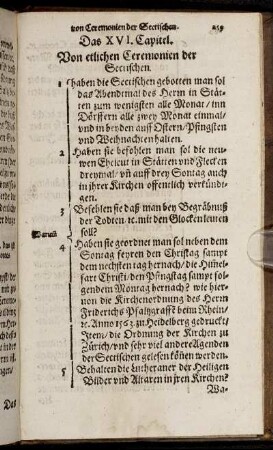 von Ceremonien der Sectischen. 259
Das XVI. Capitel.
Von etlichen Ceremonien der
Sectischen.
1 haben die Sectischen gebotten man sol
das Abendmal des Herrn in Stät-
ten zum wenigsten alle Monat/ inn
Dörffern alle zwey Monat einmal/
und in beyden auff Ostern/ Pfingsten
und Weyhnachten halten.
2 Haben sie befohlen man sol die neu-
wen Eheleut in Stätten und Flecken
dreymal/ uñ auff drey Sontag auch
in jhrer Kirchen offentlich verkündi-
gen.
3 Befehlen sie daß man bey Begräbnuß
der Todten ꝛc. mit den Glocken leuten
soll?
Warumb
4 Haben sie geordnet man sol neben dem
Sontag feyren den Christag sampt
dem nechsten tag hernach/ die Him̃el-
fart Christi/ den Pfingstag sampt fol-
gendem Montag hernach? wie hier-
von die Kirchenordnung des Herrn
Friderichs Pfaltzgraff? beym Rhein/
ꝛc. Anno 1563. zu Heidelberg gedruckt/
Item/ die Ordnung der Kirchen zu
Zürich/ und sehr viel andere Agenden
der Sectischen gelesen köñen werden.
5 Behalten die Lutheraner der Heiligen
Bilder und Altaren in jren Kirchen?
Wa-
Das